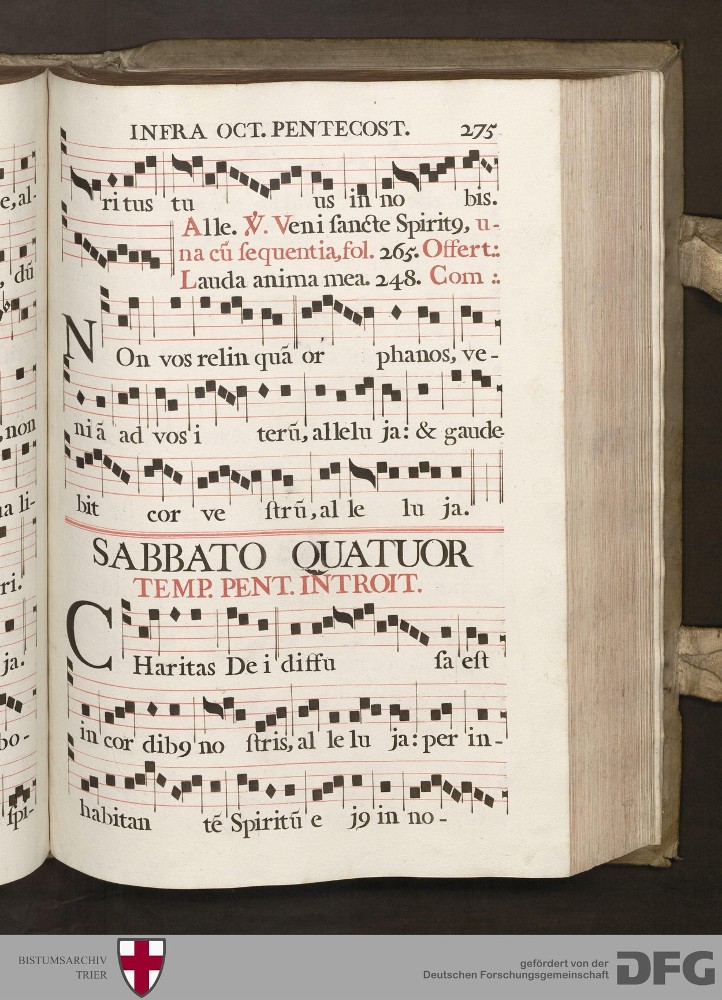 INFRA OCT. PENTECOST. 275
e, al-
ritus tu us in no bis.
Alle. ℣. Veni ſancte Spirit9, u-
na cū ſequentia, fol. 265. Offert.:
, dū
Lauda anima mea. 248. Com .:
NOn vos relin quā or phanos, ve-
, non
ni ā ad vos i terū, allelu ja: & gaude-
ua li-
bit cor ve ſtrū, al le lu ja.
SABBATO QUATUOR
ri.
TEMP. PENT. INTROIT.
ja.
CHaritas De i diffu ſa eſt
bo-
in cor dib9 no ſtris, al le lu ja: per in-
ſpi-
habitan tē Spiritū e j9 in no-
BISTUMSARCHIV
TRIER
gefördert von der
Deutschen Forschungsgemeinschaft
DFG